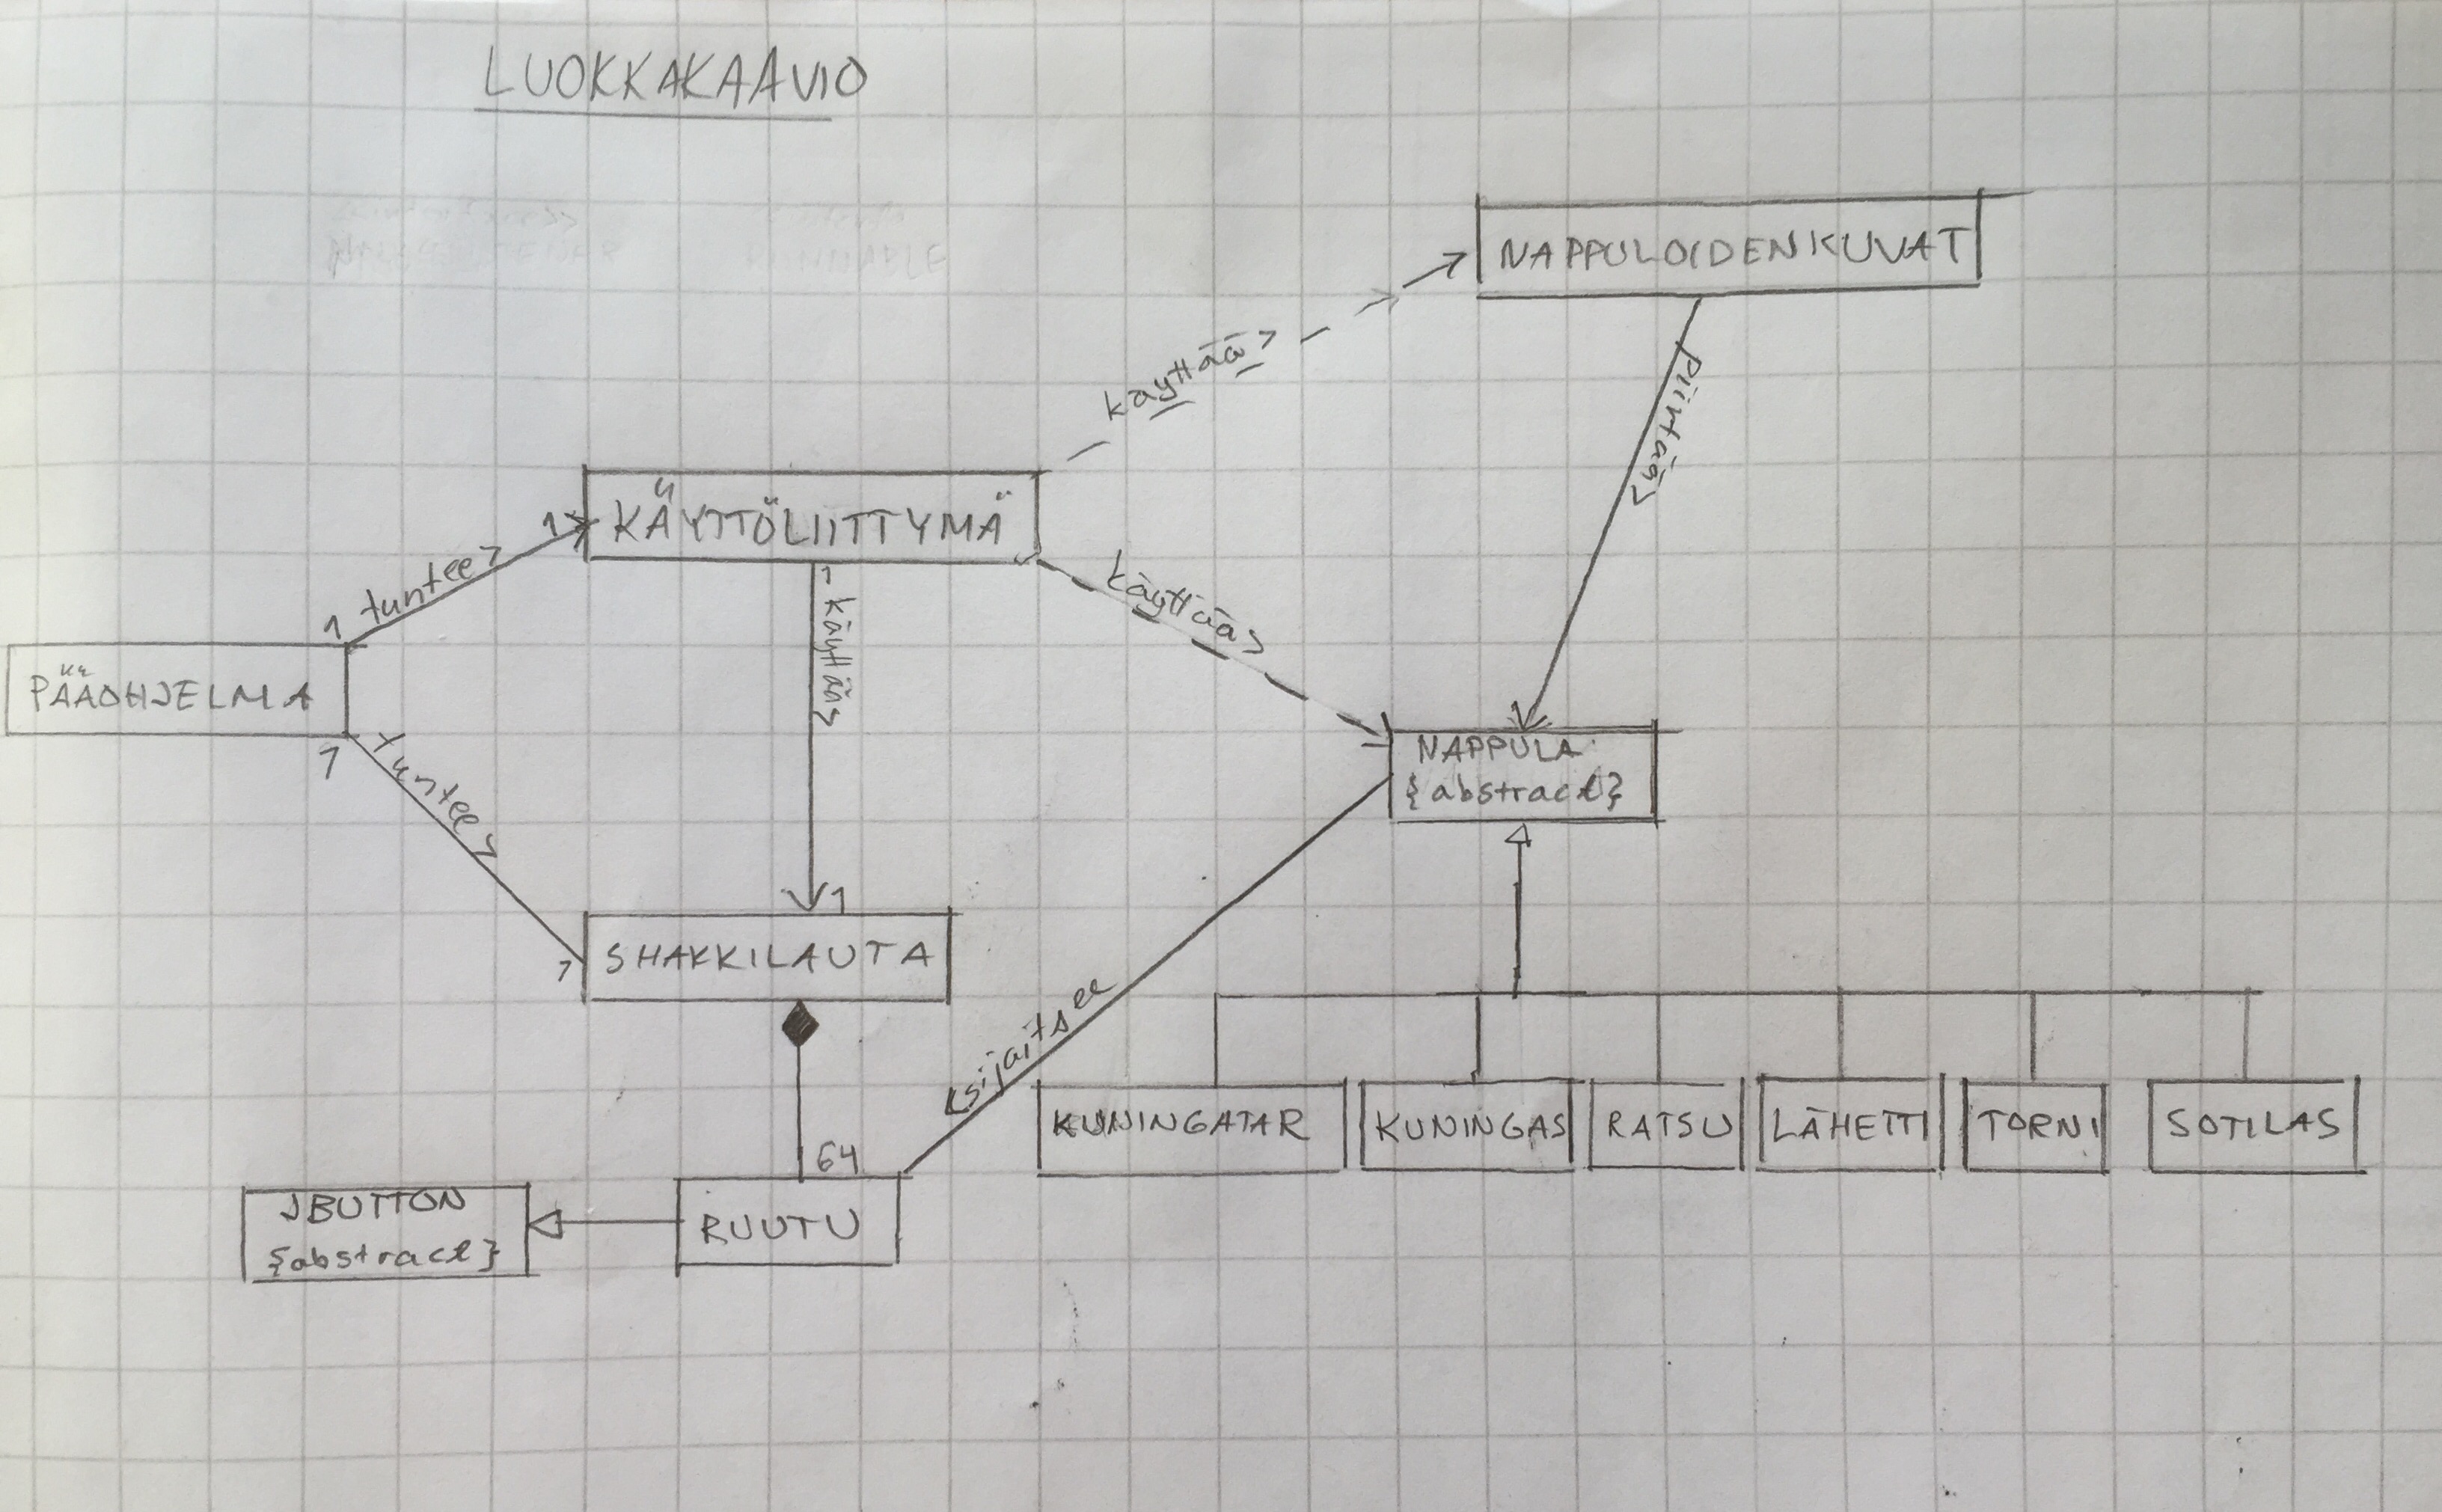 LUOKKAKAAVIO
NAPPULOIDENKUVAT
käyttää >
piirtää >
KÄYTTÖLIITTYMÄ
1
tuntee >
1
1
käyttää >
käyttää >
PÄÄOHJELMA
1
tuntee >
NAPPULA
{abstract}
1
SHAKKILAUTA
1
< sijaitsee
KUNINGATAR
KUNINGAS
RATSU
LÄHETTI
TORNI
SOTILAS
64
JBUTTON
{abstract}
RUUTU